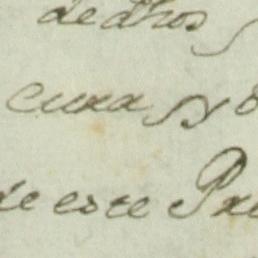 de dhos
cura, y
de este